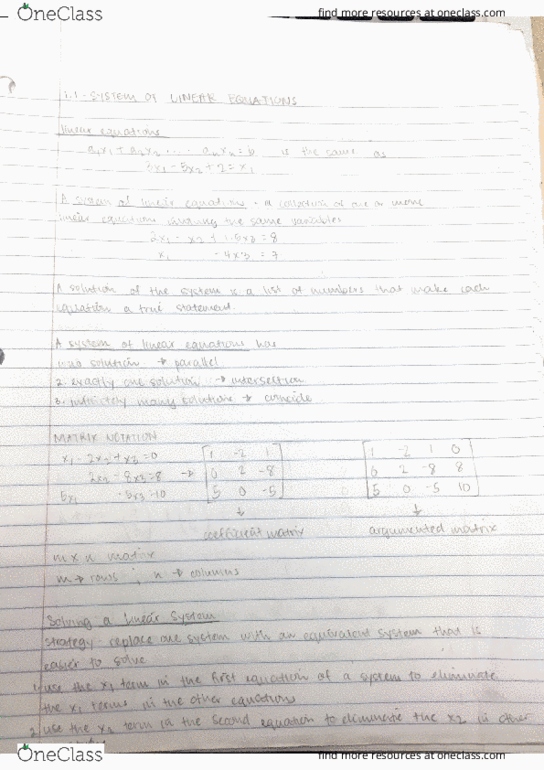 OneClass find more resources at oneclass.com
1.1 - SYSTEM OF LINEAR EQUATIONS
linear equations
a₁x₁ + a₂x₂ ... - aₙxₙ = b is the same as
3x₁ - 5x₂ + 2 = x₁
A system of linear equations - a collection of one or more
linear equations the same variables
2x₁ - x₂ + 1.5x₃ = 8
x₁ - 4x₃ = 7
A solution of the system is a list of numbers that make each
equation a true statement.
A system of linear equations has
1. no solution → parallel
2. exactly one solution → intersection
3. infinitely many solutions → coincide
MATRIX NOTATION
x₁ - 2x₂ + x₃ = 0 [1 -2 1 [1 -2 1 0
2x₂ - 8x₃ = 8 → 0 2 -8 0 2 -8 8
5x₁ - 5x₃ = 10 5 0 -5] 5 0 -5 10]
↓ ↓
coefficient matrix argumented matrix
m x n matrix
m → rows ; n → columns
Solving a Linear System
strategy - replace one system with an equivalent system that is
easier to solve
1. use the x₁ term in the first equation of a system to eliminate
the x₁ terms in the other equations
2. use the x₂ term in the second equation to eliminate the x₂ in other
OneClass find more resources at oneclass.com